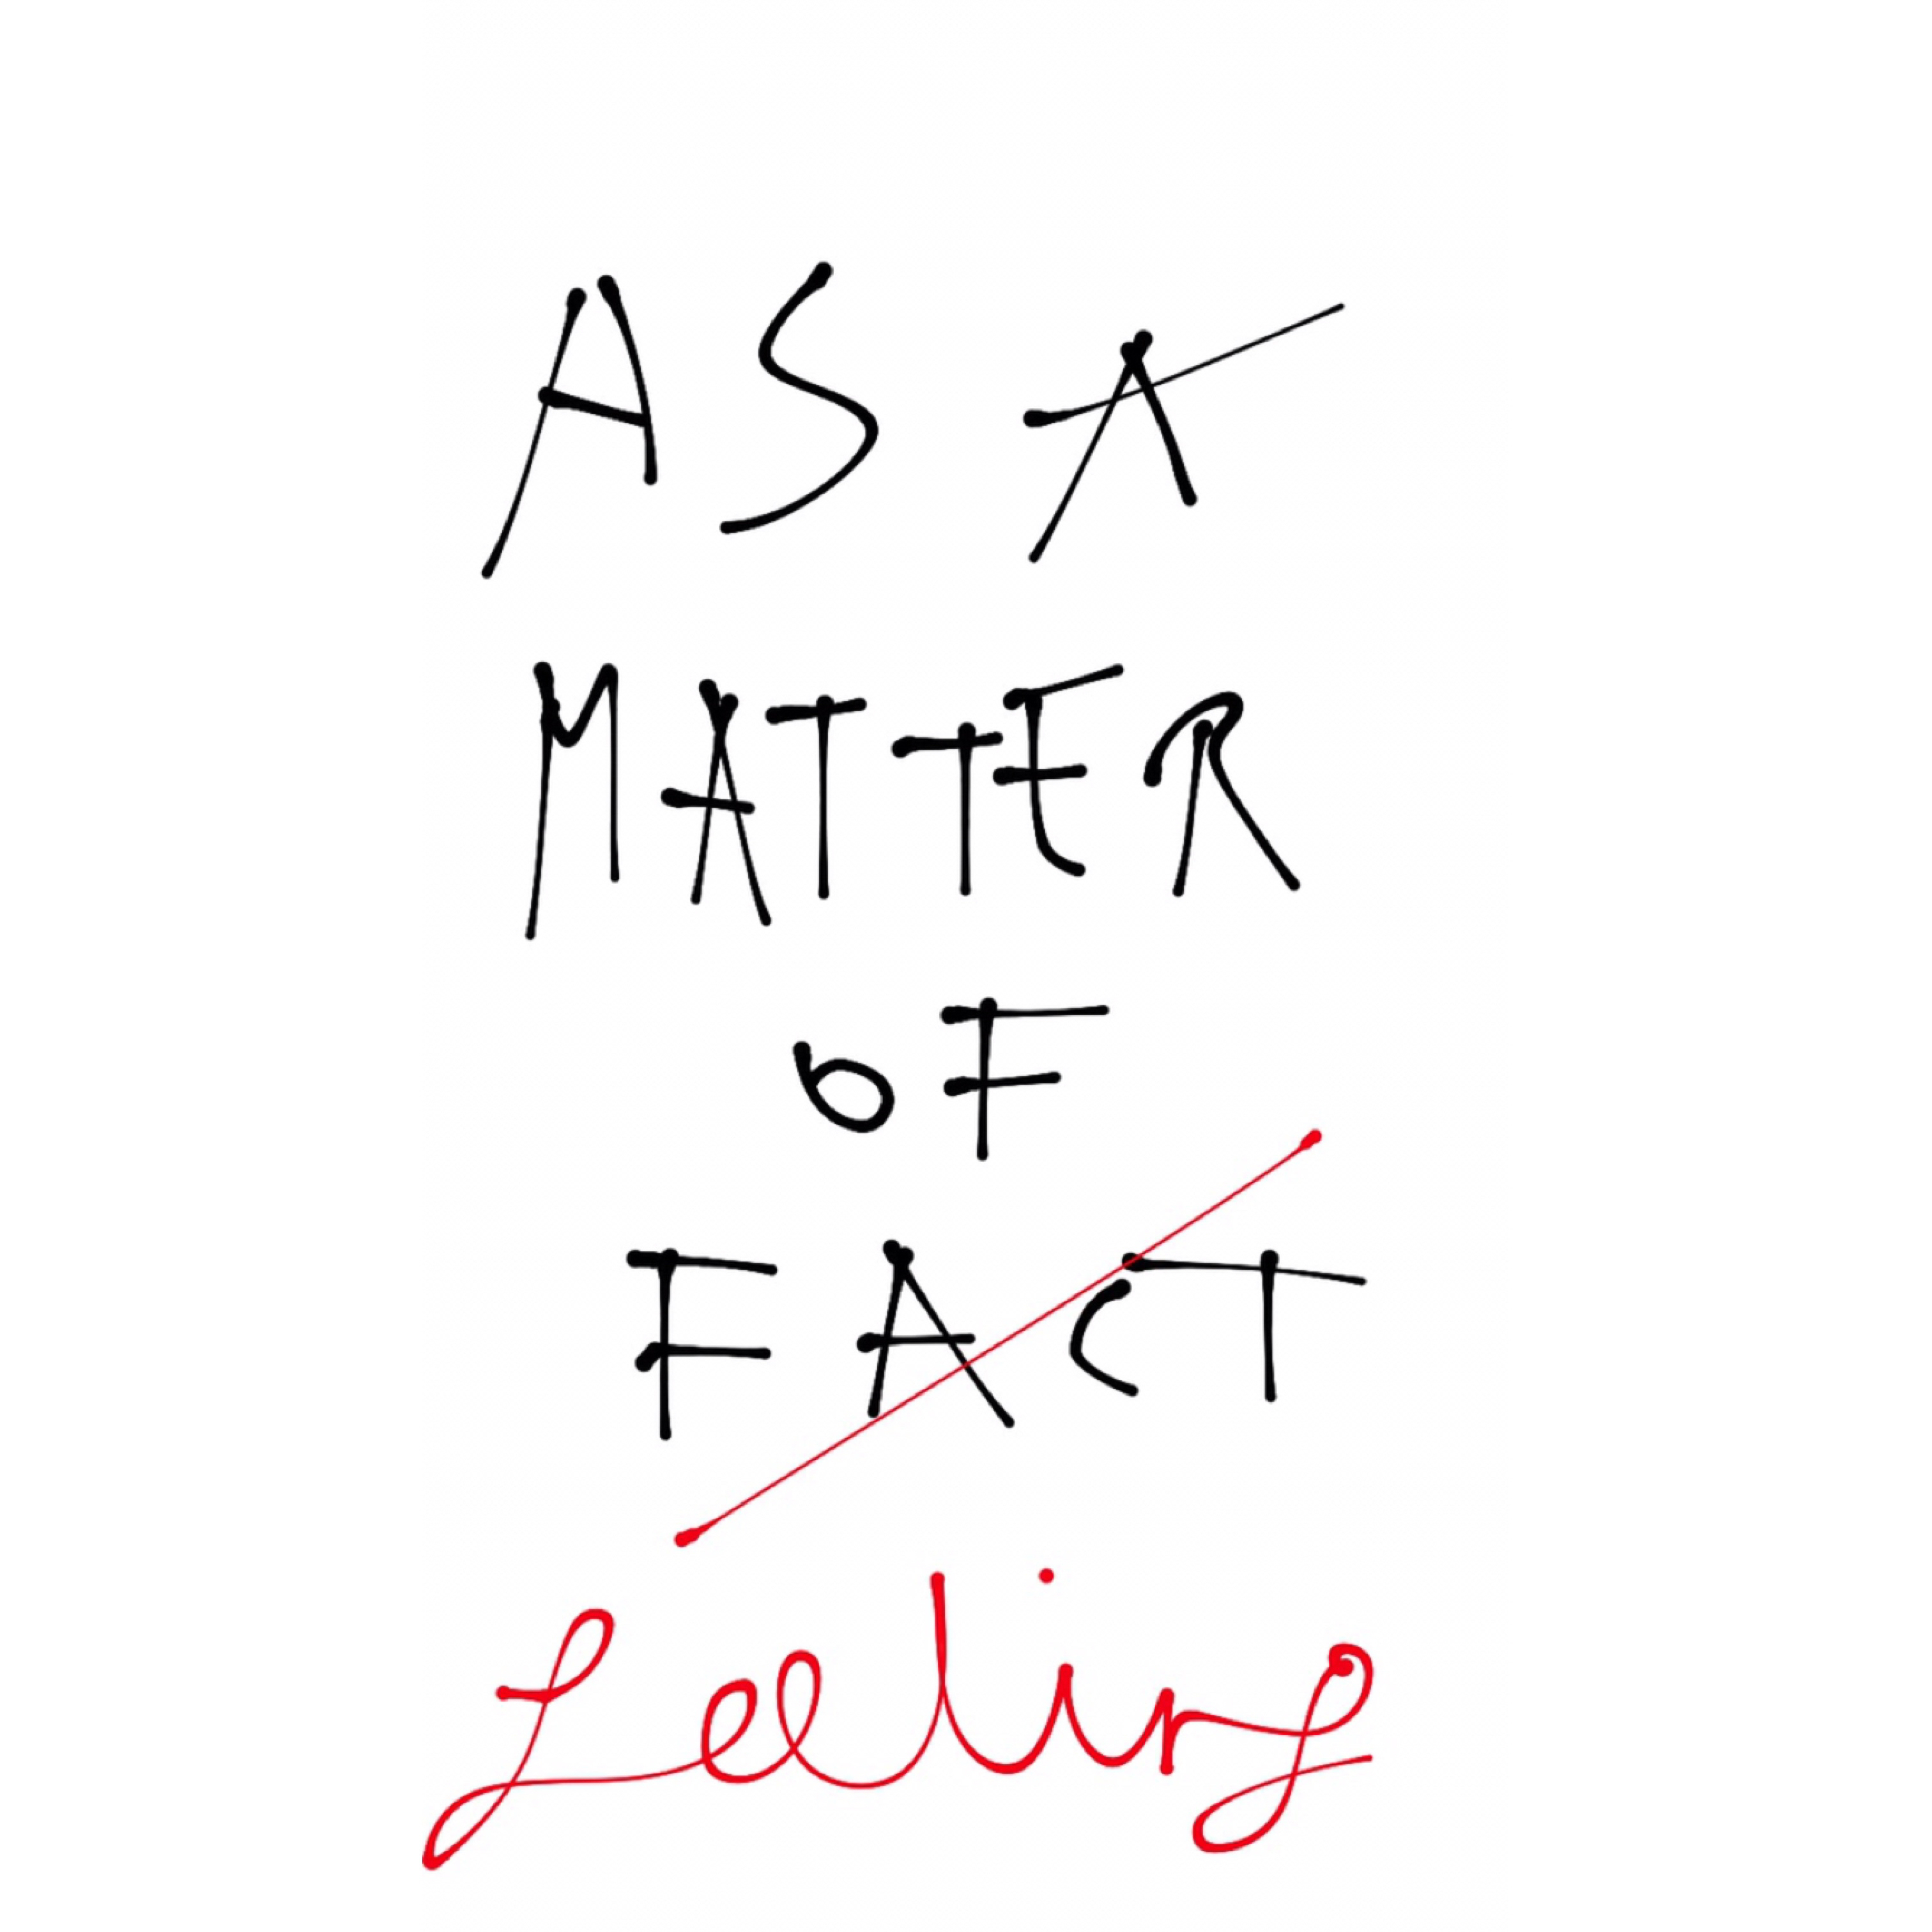 AS A
MATTER
OF
FACT
feeling